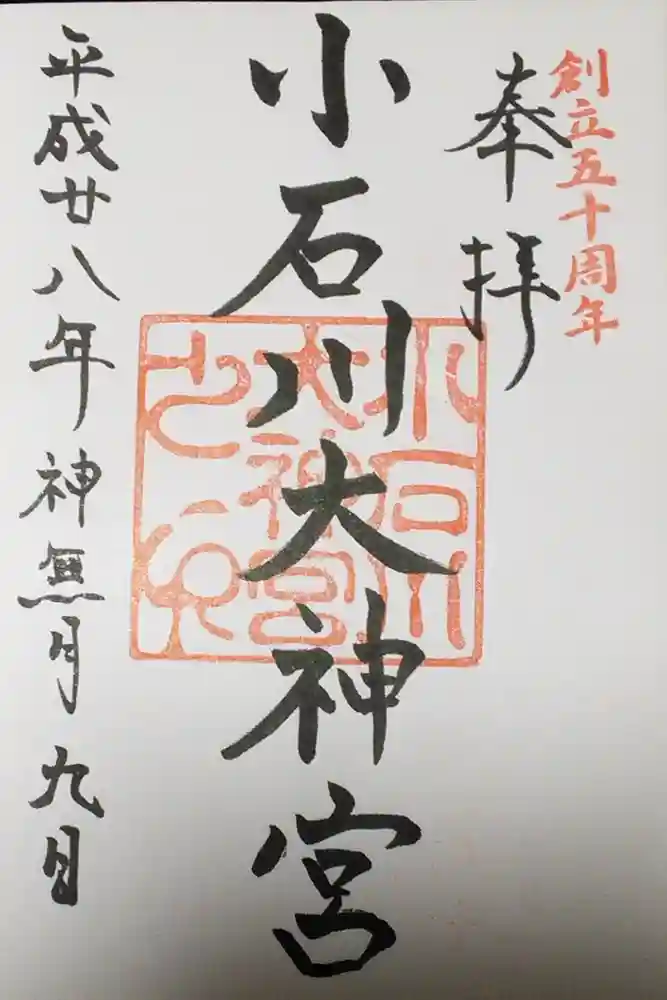 創立五十周年
奉拝
小石川大神宮
小石川
大神宮
之印
平成廿八年神無月九日